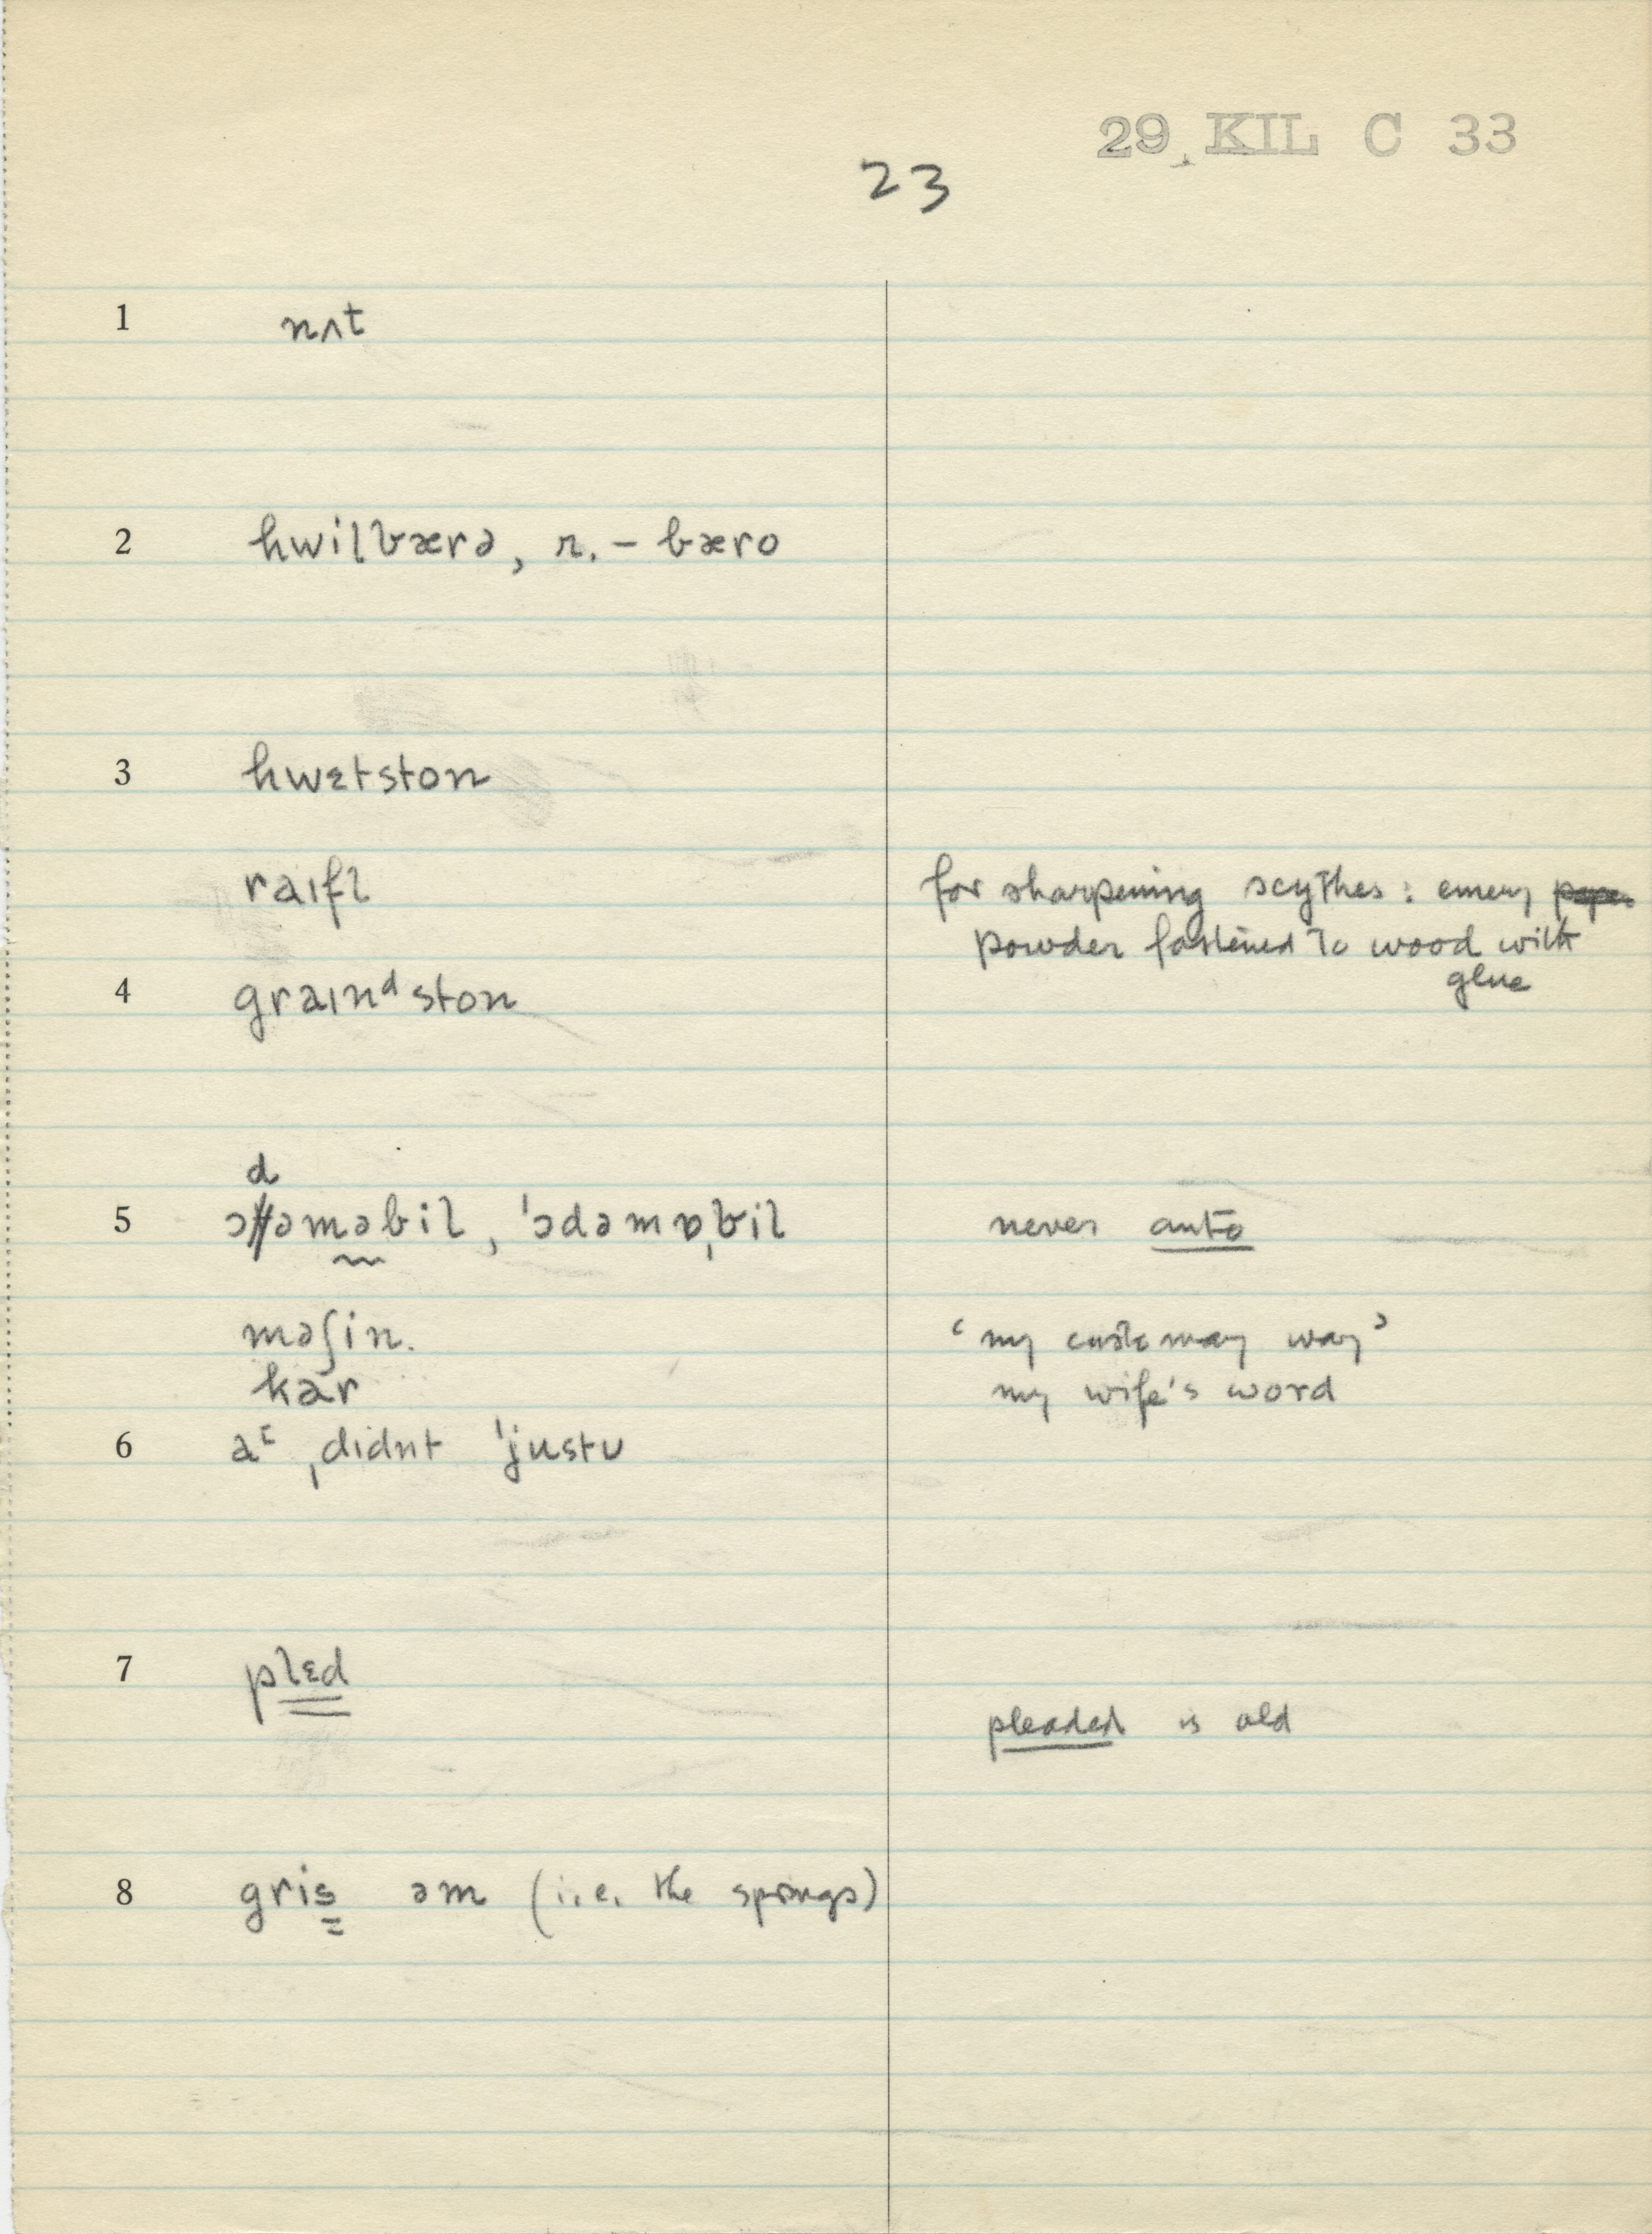 29 KIL C 33
23
1 nʌt
2 hwilbærə, r. – bæro
3 hwɛtston
raɪfl for sharpening scythes: emery
powder fastened to wood with
glue
4 graɪnᵈston
d
5 ɔtəməbil, ˈɔdəmɒˌbil never auto
məʃin. ‘my customary way’
kar my wife's word
6 ˌdidnt ˈjustʊ
7 plɛd
pleaded is old
8 gris əm (i.e. the springs)